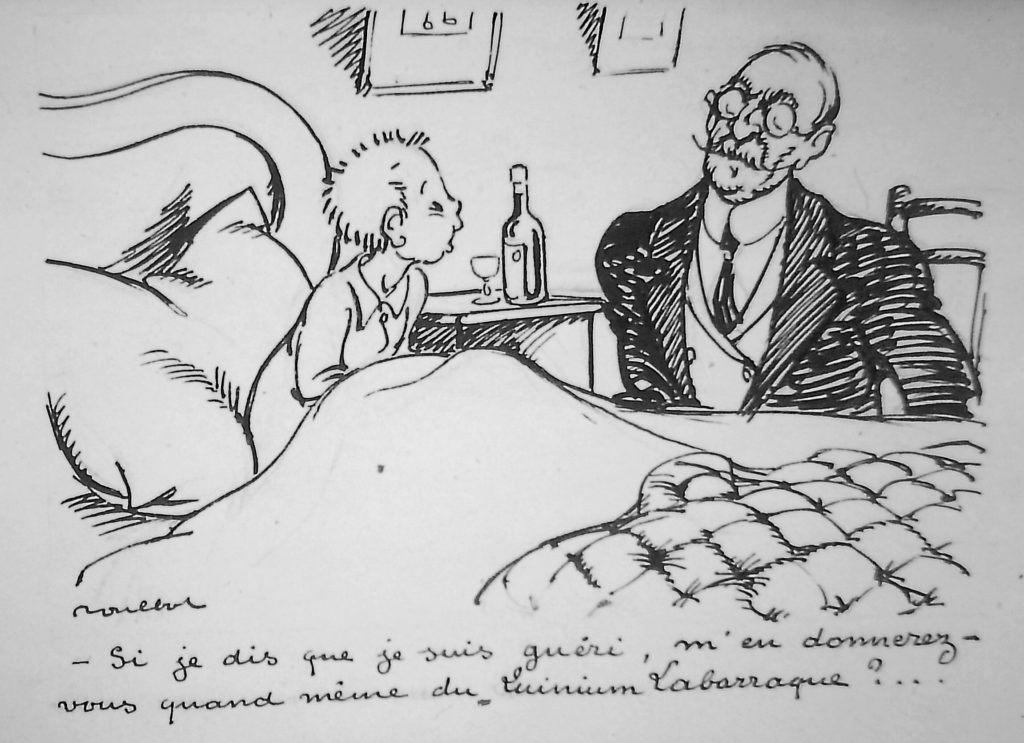 poulbot
- Si je dis que je suis guéri, m'en donnerez-
vous quand même du Quinium Labarraque ?...